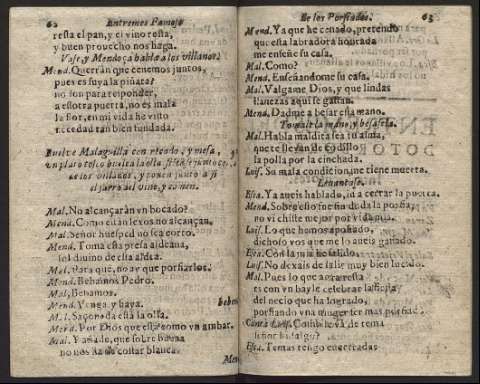 62 Entremes Famoso
resta el pan, y el vino resta,
y buen provecho nos haga.
Vase, y Mendoça habla a los villanos.
Mend. Querràn que cenemos juntos,
pues es suya la piñata?
no son para responder,
a esotra puerta, no es mala
la flor, en mi vida he visto
necedad tan bien fundada.
Buelve Malaguilla con recado, y mesa,
de los villanos, y cenen junto a si
el jarro del vino, y comen.
Mal. No alcançaràn vn bocado?
Mend. Como estàn lexos no alcançan.
Mal. Señor huesped no sea corto.
Mend. Toma esta presa aldeana,
sol divino de esta aldea.
Mal. Para que, no ay que porfiarlos.
Mend. Bebamos Pedro.
Mal. Bebamos.
Mend. Venga, y haya. beben
Mal. Saçonada està la olla.
Mend. Por Dios que està como vn ambar.
Mal. Y añade, que sobre buena
no nos ha de costar blanca.
Men
De los Porfiados. 63
Mend. Ya que he cenado, pretendo
que esta labradora honrada
me enseñe su casa.
Mal. Como?
Mend. Enseñandome su casa.
Mal. Valgame Dios, y que lindas
llanezas aqui se gastan.
Mend. Dadme a besar esta mano.
Tomale la mano, y besasela.
Mal. Habla maldita sea tu alma,
que te llevan de codillo
la polla por la cinchada.
Luis. Su mala condicion me tiene muerta.
Levantase.
Esta. Ya aveis hablado, id a cerrar la puerta.
Mend. Sobre esso fue sin duda la porfia,
no vi chiste mejor por vida mia.
Luis. Lo que hemos porfiado,
dichoso vos que me lo aveis ganado.
Esta. Con la mia he salido.
Luis. No dexais de salir muy bien lucido.
Mal. Pues lo que aora resta
es con vn bayle celebrar la fiesta
del necio que ha logrado,
porfiando vna muger ser mas porfiado.
señor hidalgo?
Esta. Temas tengo encerradas